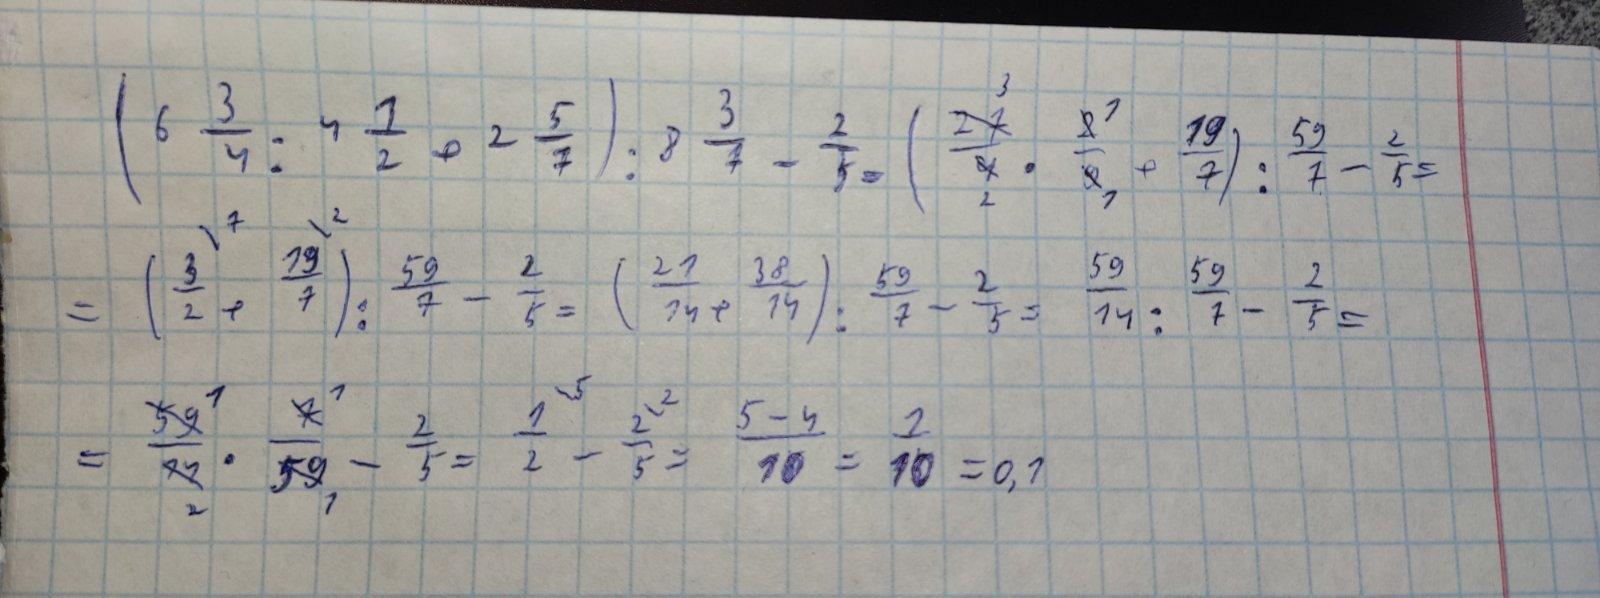 (6 3/4 : 4 1/2 + 2 5/7) : 8 3/7 - 2/5 = (27/4 · 2/9 + 19/7) : 59/7 - 2/5 =
= (3/2 \7 + 19/7 \2) : 59/7 - 2/5 = (21/14 + 38/14) : 59/7 - 2/5 = 59/14 : 59/7 - 2/5 =
= 59/14 · 7/59 - 2/5 = 1/2 \5 - 2/5 \2 = 5-4/10 = 1/10 = 0,1